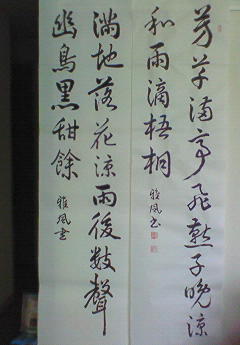 芳草滿亭飛燕子晚涼
和雨滴梧桐
雅風书
滿地落花涼雨後數聲
幽鳥黑甜餘
雅風書